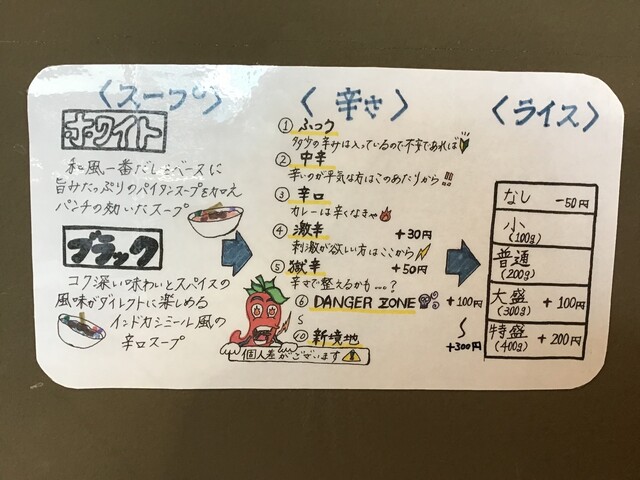 〈スープ〉
ホワイト
和風一番だしをベースに
旨みたっぷりのパイタンスープを加え
パンチの効いたスープ
ブラック
コク深い味わいとスパイスの
風味がダイレクトに楽しめる
インドカシミール風の
辛口スープ
〈辛さ〉
① ふつう
多少の辛みは入っているので不安であれば
② 中辛
辛いのが平気な方はこのあたりから!!
③ 辛口
カレーは辛くなきゃ
④ 激辛 +30円
刺激が欲しい方はここから
⑤ 獄辛 +50円
辛さで整えるかも…?
⑥ DANGER ZONE +100円
〜 〜
⑩ 新境地 +300円
個人差がございます
〈ライス〉
なし -50円
小
(100g)
普通
(200g)
大盛 +100円
(300g)
特盛 +200円
(400g)